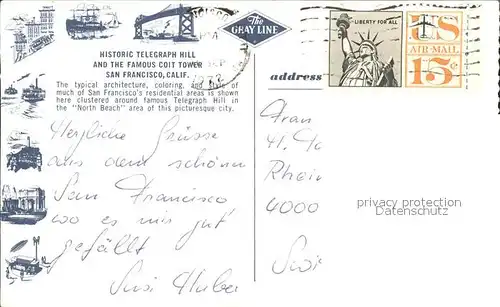 The
GRAY LINE
HISTORIC TELEGRAPH HILL
AND THE FAMOUS COIT TOWER
SAN FRANCISCO, CALIF.
The typical architecture, coloring, and style of
much of San Francisco's residential areas is shown
here clustered around famous Telegraph Hill in
the "North Beach" area of this picturesque city.
Herzliche Grüsse
aus dem schönen
San Francisco
wo es mir gut
gefällt
Susi Huber
LIBERTY FOR ALL
US
AIR MAIL
15c
address
Frau
H.
Rhein
4000
privacy protection
Datenschutz